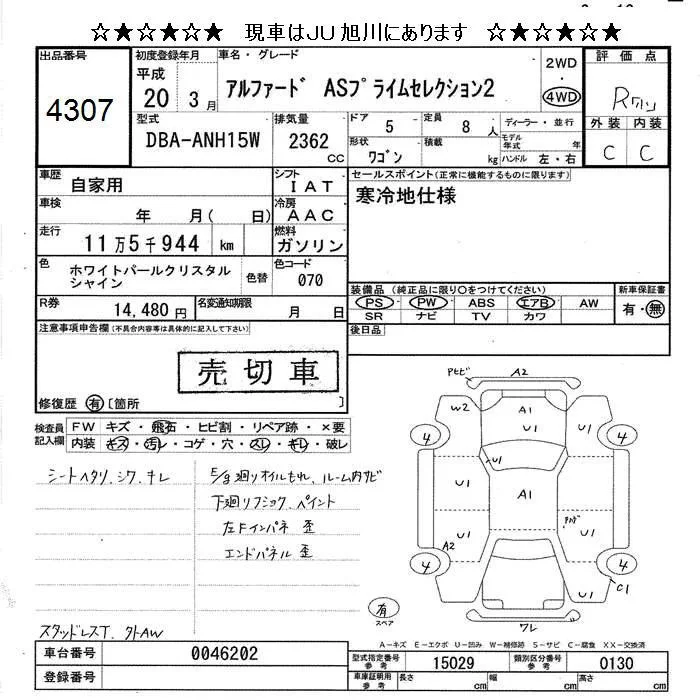 ☆★☆★☆★ 現車はJU旭川にあります ☆★☆★☆★
出品番号
4307
初度登録年月
平成
20 3月
車名・グレード
アルファード ASプライムセレクション2
2WD
4WD
評価点
R
外装 内装
C C
型式
DBA-ANH15W
排気量
2362
CC
ドア 5
定員 8人
形状 ワゴン
積載 kg
ディーラー・並行
モデル年式 年
ハンドル 左・右
車歴 自家用
シフト
IAT
車検 年 月( 日)
冷房
AAC
走行 11万5千944 km
燃料
ガソリン
色 ホワイトパールクリスタル
シャイン
色替
色コード
070
R券 14,480円
名変通知期限 月 日
セールスポイント(正常に機能するものに限ります)
寒冷地仕様
装備品 (純正品に限り○をつけてください)
PS PW ABS エアB AW
SR ナビ TV カワ
新車保証書
有・無
後日品
注意事項申告欄(不具合内容等は具体的に記入して下さい)
売切車
修復歴 有 〔箇所 〕
検査員
記入欄
FW キズ・飛石・ヒビ割・リペア跡・×要
内装 キズ・汚レ・コゲ・穴・スレ・キレ・破レ
シートヘタリ、シワ、キレ
E/g廻りオイルもれ、ルーム内サビ
下廻りフショク、ペイント
左Fインパネ 歪
エンドパネル 歪
スタッドレスT、外AW
Pヒビ A2
W2 A1 U1
4 U1 4
U1 A1 U1
A2 U1 U1
4 4
C1
有
スペア
ワレ
A-キズ E-エクボ U-凹み W-補修跡 S-サビ C-腐食 XX-交換済
車台番号 0046202
登録番号
型式指定番号
参考
15029
類別区分番号
参考
0130
車庫証明用
参考
長さ cm 幅 cm 高さ cm